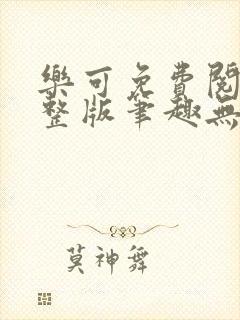 樂可免費閱
整版筆趣無
莫神舞